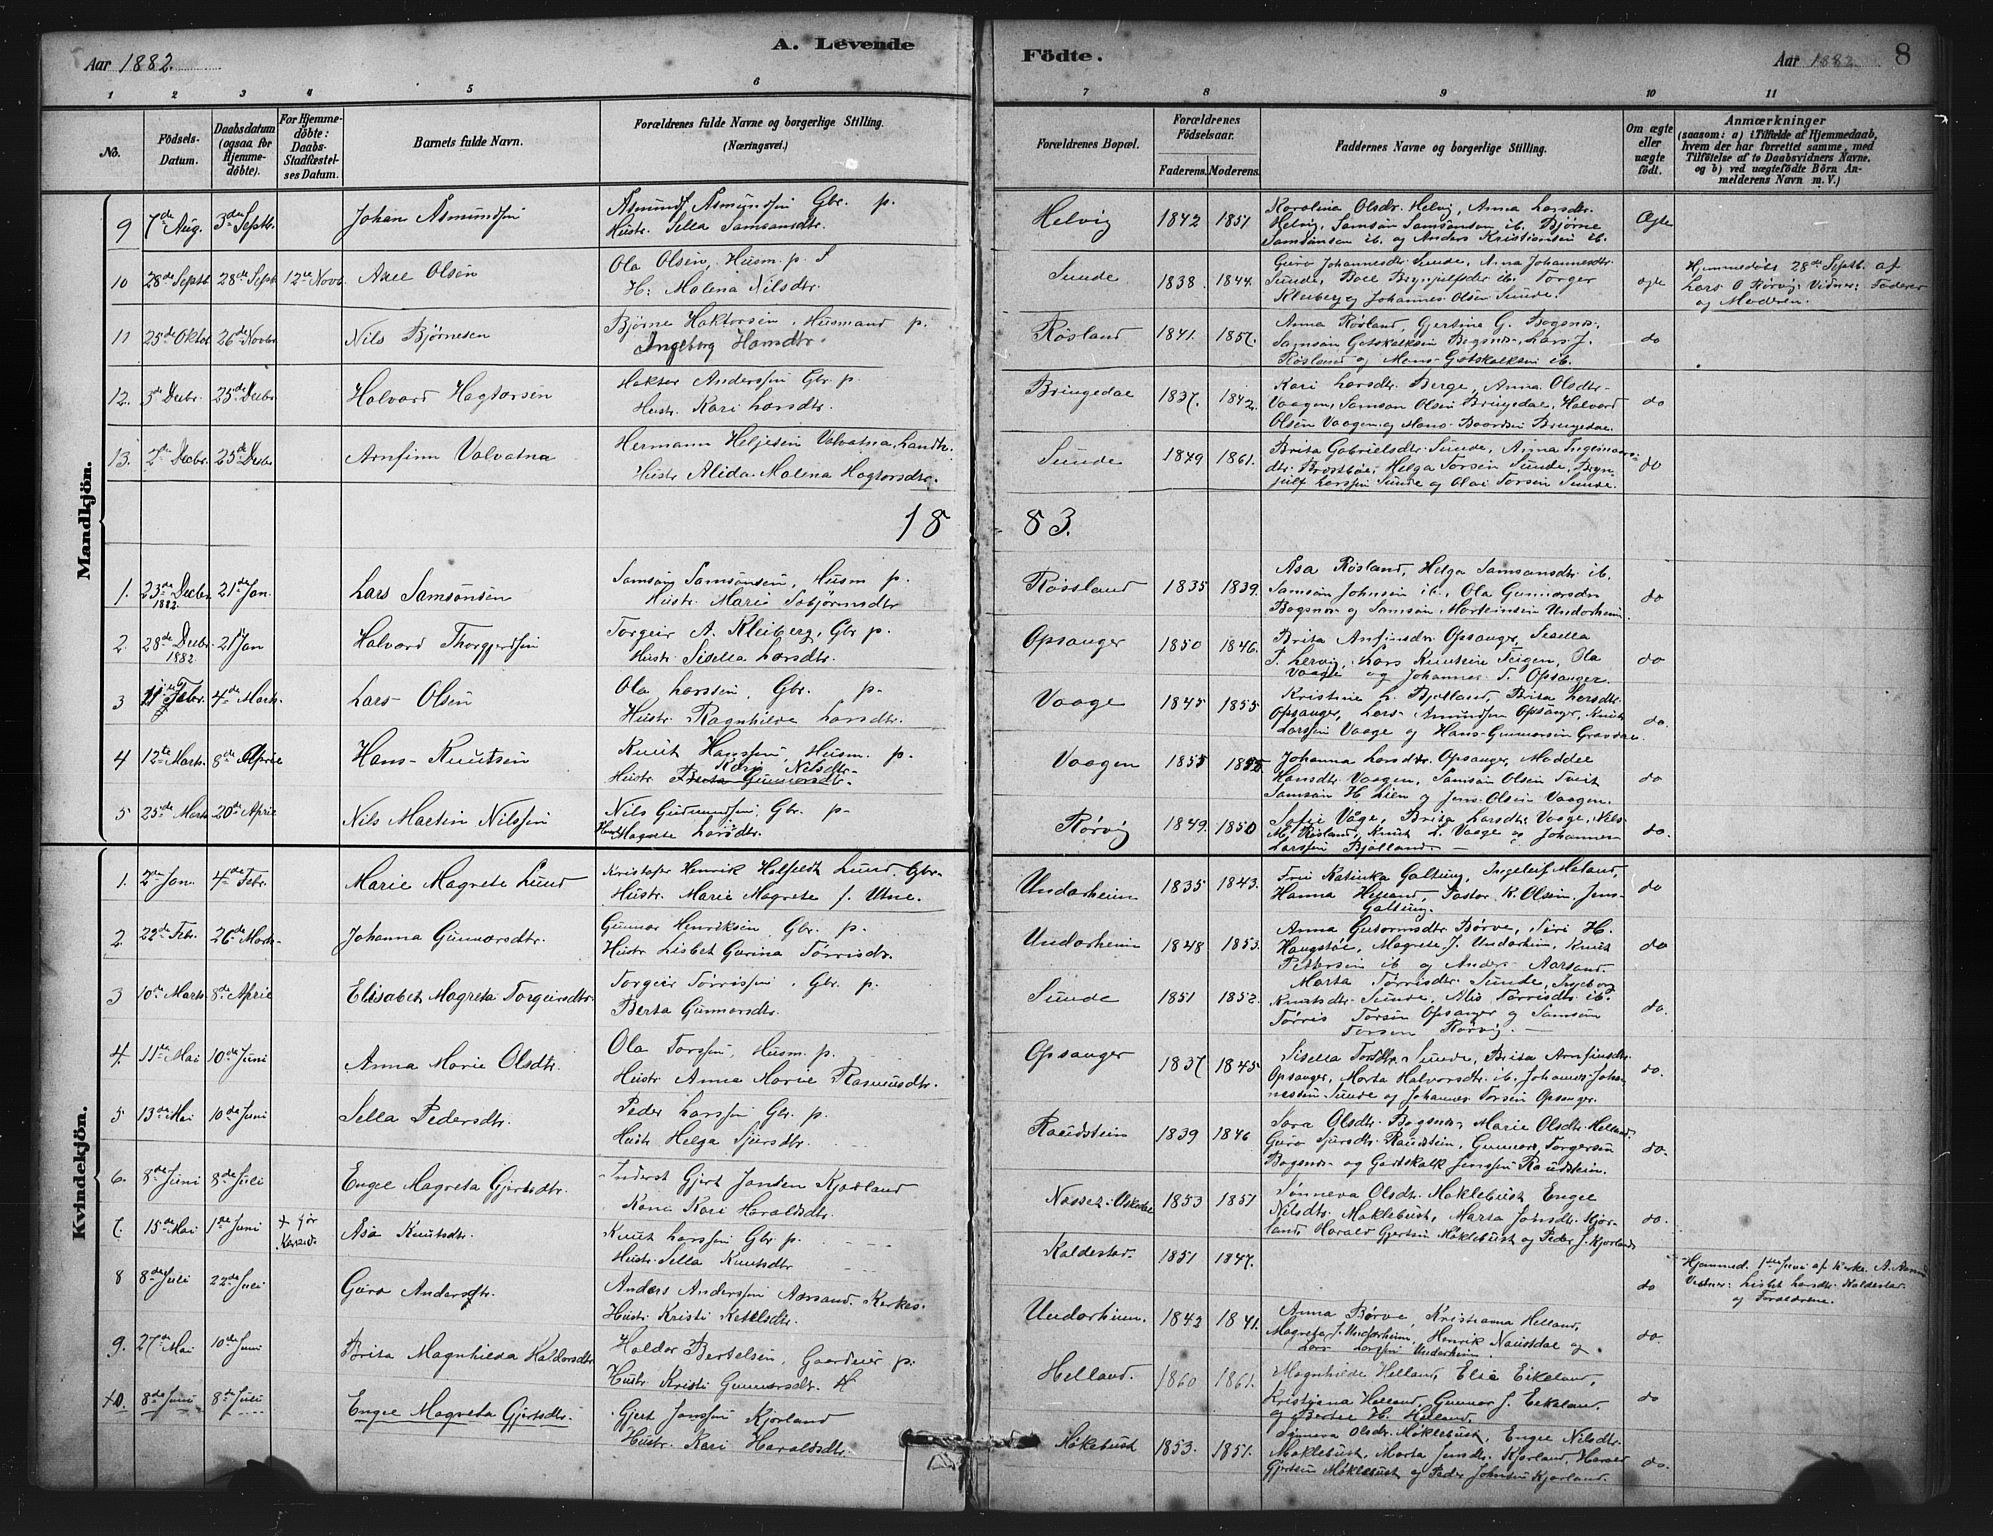 A. Levende
Födte.
Aar 1882.
Aar 1882
8
1 2 3 4 5 6 7 8 9 10 11
No.
Födsels-Datum.
Daabsdatum (ogsaa for Hjemme-döbte).
For Hjemme-döbte: Daabs-Stadfæstel-ses Datum.
Barnets fulde Navn.
Forældrenes fulde Navne og borgerlige Stilling. (Næringsvei.)
Forældrenes Bopæl.
Forældrenes Födselsaar.
Faderens. Moderens.
Faddernes Navne og borgerlige Stilling.
Om ægte eller uægte födt.
Anmærkninger (saasom: a) i Tilfælde af Hjemmedaab, hvem der har forrettet samme, med Tilföielse af to Daabsvidners Navne. og b) ved uægtefödte Börn An-melderens Navn m. V.)
Mandkjön.
9 7de Aug. 3de Septb. Johan Asmundsen
Asmund Asmundsen Gbr. p.
Hustr. Sella Samsonsdtr.
Helvig 1842 1851
Karolina Olsdr. Helvig, Anna Larsdtr.
Helvig, Samson Samsonsen ib. Bjørne
Samsonsen ib. og Anders Kristiansen ib.
Ægte
10 28de Septb. 28de Septb 12te Novb. Axel Olsen
Ola Olsen, Husm. p. S
H: Malena Nilsdtr.
Sunde 1838. 1844.
Guro Johannesdtr. Sunde, Anna Johannesdtr.
Sunde,
Kleiberg og Johannes Olsen Sunde.
ægte
Hjemmedøbt 28de Septb. af
Lars O Rørvig. Vidner: Faderen
og Moderen.
11 25de Oktob 26de Novbr Nils Bjørnesen
Bjørne Haktorsen, Husmand p.
Ingeborg Hansdtr.
Røsland 1841. 1857.
Anna Røsland, Gjertine G. Bogsnes.
Samson Gotskalksen Bogsnes, Lars J.
Røsland og Mons Gotskalksen ib.
do
12. 5te Decbr. 25de Decbr Halvard Hagtorsen
Haktor Andersen Gbr. p.
Hustr. Kari Larsdtr.
Bringedal 1837. 1842.
Kari Larsdtr. Berge, Anna Olsdtr
Vaagen, Samson Olsen Bringedal, Halvard
Olsen Vaagen og Hans Baardsen Bringedal.
do
13. 2de Decbr. 25de Decbr Arnfinn Valvatna
Hermann Heljesen Valvatna, Landh.
Hustr Alida Malena Hagtorsdtr.
Sunde 1849 1861.
Brita Gabrielsdtr. Sunde, Anna Ingemars-
dtr. Helga Torsen Sunde, Bryn-
julf Larssen Sunde og Olai Torsen Sunde.
do
18 83.
1. 23de Decbr 1882. 21de Jan. Lars Samsonsen
Samson Samsonsen, Husm p.
Hustr. Marie
Røssland 1835 1839.
Asa Røsland, Helga Samsonsdtr ib.
Samson Johnsen ib, Ola Gunnarsøn
Bogsnes og Samson Mortensen Undarheim
do
2. 28de Decbr. 1882. 21de Jan Halvard Thorgjerdsen
Torgeir A. Kleiberg, Gbr p.
Hustr. Sisella Larsdtr.
Opsanger 1850 1846.
Brita Anfinsdtr. Opsanger, Sisella
T. Lervig, Lars Knutsen Teigen, Ola
Vaage og Johannes T. Opsanger.
do
3 Febr. 4de Marts. Lars Olsen
Ola Larssen, Gbr. p.
Hustr. Ragnhilde Larsdtr.
Vaage 1845 1855.
Kristine L. Bjelland, Brita Larsdtr
Opsanger, Lars Amundsen Opsanger, Knut
Larssen Vaage og Hans Gunnarsen Gravdal
do.
4 12te Marts. 8de Aprie Hans Knutsen
Knut Hanssen, Husm. p.
Kari Nilsdtr
Hustr. Berta Gunnarsdtr.
Vaagen 1855 1855
Johanna Larsdtr. Opsanger, Maddel
Hansdtr. Vaagen, Samson Olsen Tveit
Samson H. Lien og Jens Olsen Vaagen.
do
5 25de Marts 20de Aprie Nils Martin Nilssen
Nils Gudmundsen, Gbr. p
Hust Magrete Larsdtr.
Rørvig 1849. 1850
Sofie Vage, Brita Larsdtr. Vaage, Nils
M. Røsland, Knut L. Vaage og Johannes
Larssen Bjølland
do.
Kvindekjön.
1. 2de Jan. 4de Febr. Marie Magrete Lund
Kristofer Henrik Lund, Gbr.
Hustr. Marie Magrete f. Utne.
Undarheim 1835 1843.
Frue Katinka Galtung, Meland,
Hanna Helland, Pastor K. Olsen, Jens
Galtung.
do
2. 22de Febr. 26de Marts. Johanna Gunnarsdtr.
Gunnar Henriksen, Gbr. p.
Hustr. Lisbet Gurina Tørrisdtr.
Undarheim 1848 1853.
Anna Gutormsdtr Børve, Siri H.
Haugstøl, Magrete J. Undarheim, Knut
Pettersen ib og Anders Aarsand.
do
3 10de Marts 8de Aprie Elisabet Magreta Torgeirsdtr.
Torgeir Tørrissen, Gbr. p.
Berta Gunnarsdtr.
Sunde 1851 1852.
Marta Tørrisdtr. Sunde, Ingeborg
Knutsdtr. Sunde, Alis Tørrisdtr. ib.
Tørris Torsen Opsanger og Samson
Torsen Rørvig.
do.
4. 11te Mai 10de Juni Anna Marie Olsdtr.
Ola Torssen, Husm. p.
Hustr Anna Marie Rasmusdtr.
Opsanger 1837 1845
Sisella Torsdtr. Sunde, Brita Arnfinsdtr.
Opsanger, Marta Halvorsdtr. ib. Johannes Johan-
nessen Sunde og Johannes Torsen Opsanger.
do.
5 13de Mai 10de Juni Sella Pedersdtr.
Peder Larssen Gbr. p.
Hustr. Helga Sjursdtr.
Raudstein 1839 1846
Sara Olsdtr. Bogsnes, Marie Olsdtr. Helland.
Guro Sjursdtr. Raudstein, Gunnar Torgersen
Bogsnes og Godskalk Jenssen Raudstein.
do.
6. 8de Juni 8de Juli Engel Magreta Gjertsdtr.
Inderst Gjert Jansen Kjorland
Kone Kari Haraldsdtr.
1853 1851
Sønneva Olsdtr. Møklebust, Engel
Nilsdtr. Møklebust, Marta Johsdtr. Kjor-
land, Harald Gjertsen Møklebust og Peder J. Kjorland
do.
7. 15de Mai 1de Juni Asa Knutsdtr.
Knut Larssen Gbr. p.
Hustr. Sella Knutsdtr
Kaldestad. 1851 1847.
Hjemmed. 1ste Juni af
Vidner: Lisbet Larsdtr. Kaldestad
og Forældrene.
8 8de Juli 22de Juli Guro Andersdtr.
Anders Anderssen Aarsand.
Hustr. Kristi Ketelsdtr.
do
Undarheim. 1842 1841.
Anna Børve, Kristianna Helland,
Magreta J. Undarheim, Henrik Naustdal og
Lars Larssen Undarheim
do
9. 27de Mai 10de Juni Brita Magnhilda Haldorsdtr
Haldor Bertelsen, p.
Hustr. Kristi Gunnarsdtr. H
Helland. 1860 1861.
Magnhilde Helland, Elie Eikeland,
Kristiana Helland, Gunnar J. Eikeland.
og Bertel H. Helland.
do
10. 8de Juni 8de Juli Engel Magreta Gjertsdtr.
Gjert Janssen Kjorland
Hustr. Kari Haraldsdtr.
Møklebust 1853. 1851.
Sønneva Olsdtr. Møklebust, Engel Nilsdtr.
Møklebust, Marta Jansdtr. Kjorland, Harald
Gjertsen Møklebust og Peder Johnsen Kjorland.
do.